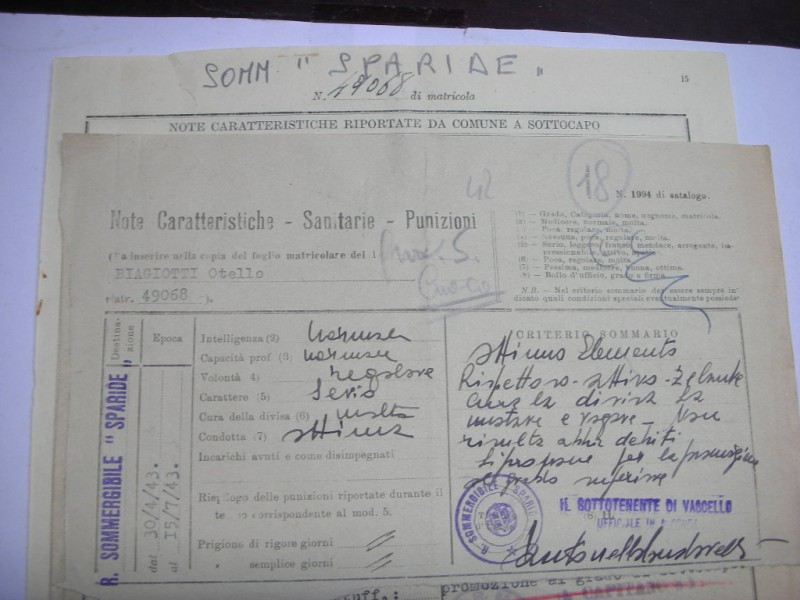 SOMM " SPARIDE "
N. 49068 di matricola
15
NOTE CARATTERISTICHE RIPORTATE DA COMUNE A SOTTOCAPO
42
18
N. 1994 di catalogo.
Note Caratteristiche - Sanitarie - Punizioni
(Da inserire nella copia del foglio matricolare del
BIAGIOTTI Otello
matr. 49068
(1) — Grado, Categoria, nome, cognome, matricola.
(2) — Mediocre, normale, molta.
(3) — Poca, regolare, molta.
(4) — Nessuna, poca, regolare, molta.
(5) — Serio, leggero, franco, mendace, arrogante, impressionabile, attivo,
(6) — Poca, regolare, molta.
(7) — Pessima, mediocre, buona, ottima.
(8) — Bollo d'ufficio, grado e firma.
N.B. — Nel criterio sommario deve essere sempre indicato quali condizioni speciali eventualmente possiede
Destinazione
Epoca
R. SOMMERGIBILE " SPARIDE "
dal 30/4/43.
al 15/7/43.
Intelligenza (2) normale
Capacità prof (3) normale
Volontà 4) regolare
Carattere (5) Serio
Cura della divisa (6) molta
Condotta (7) ottima
Incarichi avuti e come disimpegnati
Riepilogo delle punizioni riportate durante il
tempo corrispondente al mod. 5.
Prigione di rigore giorni //
" semplice giorni //
CRITERIO SOMMARIO
ottimo Elemento
Rispettoso - attivo - Zelante
Cura la divisa la
e vapore - Non
risulta abbia debiti
Si propone per la promozione
al grado superiore
R. SOMMERGIBILE " SPARIDE
IL SOTTOTENENTE DI VASCELLO
UFFICIALE IN
promozione al grado